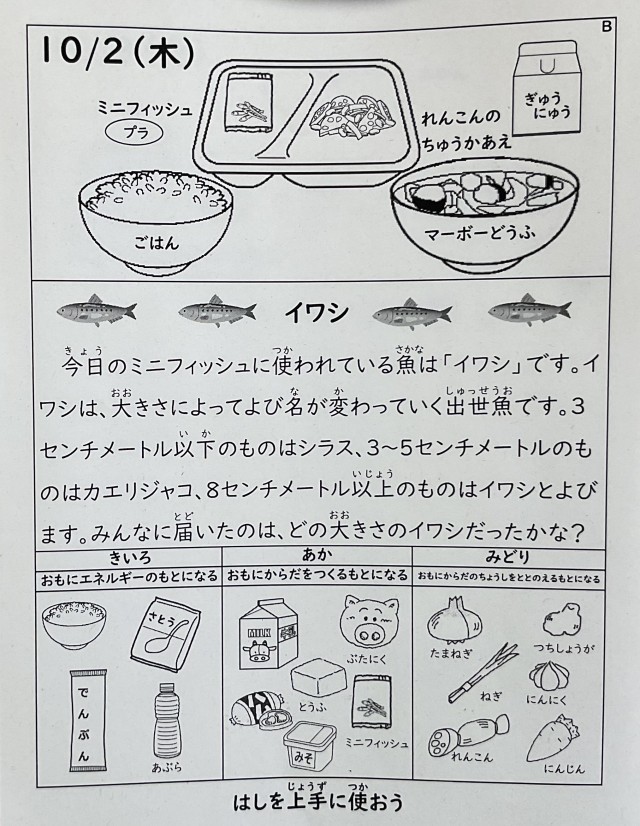 B
10/2(木)
ミニフィッシュ
プラ
れんこんの
ちゅうかあえ
ぎゅう
にゅう
ごはん
マーボーどうふ
イワシ
きょう つか さかな
今日のミニフィッシュに使われている魚は「イワシ」です。イ
おお な か しゅっせうお
ワシは、大きさによってよび名が変わっていく出世魚です。3
いか
センチメートル以下のものはシラス、3~5センチメートルのも
いじょう
のはカエリジャコ、8センチメートル以上のものはイワシとよび
とど おお
ます。みんなに届いたのは、どの大きさのイワシだったかな?
きいろ
おもにエネルギーのもとになる
さとう
でんぷん
あぶら
あか
おもにからだをつくるもとになる
MILK
ぶたにく
とうふ
みそ
ミニフィッシュ
みどり
おもにからだのちょうしをととのえるもとになる
たまねぎ
つちしょうが
ねぎ
にんにく
れんこん
にんじん
じょうず つか
はしを上手に使おう